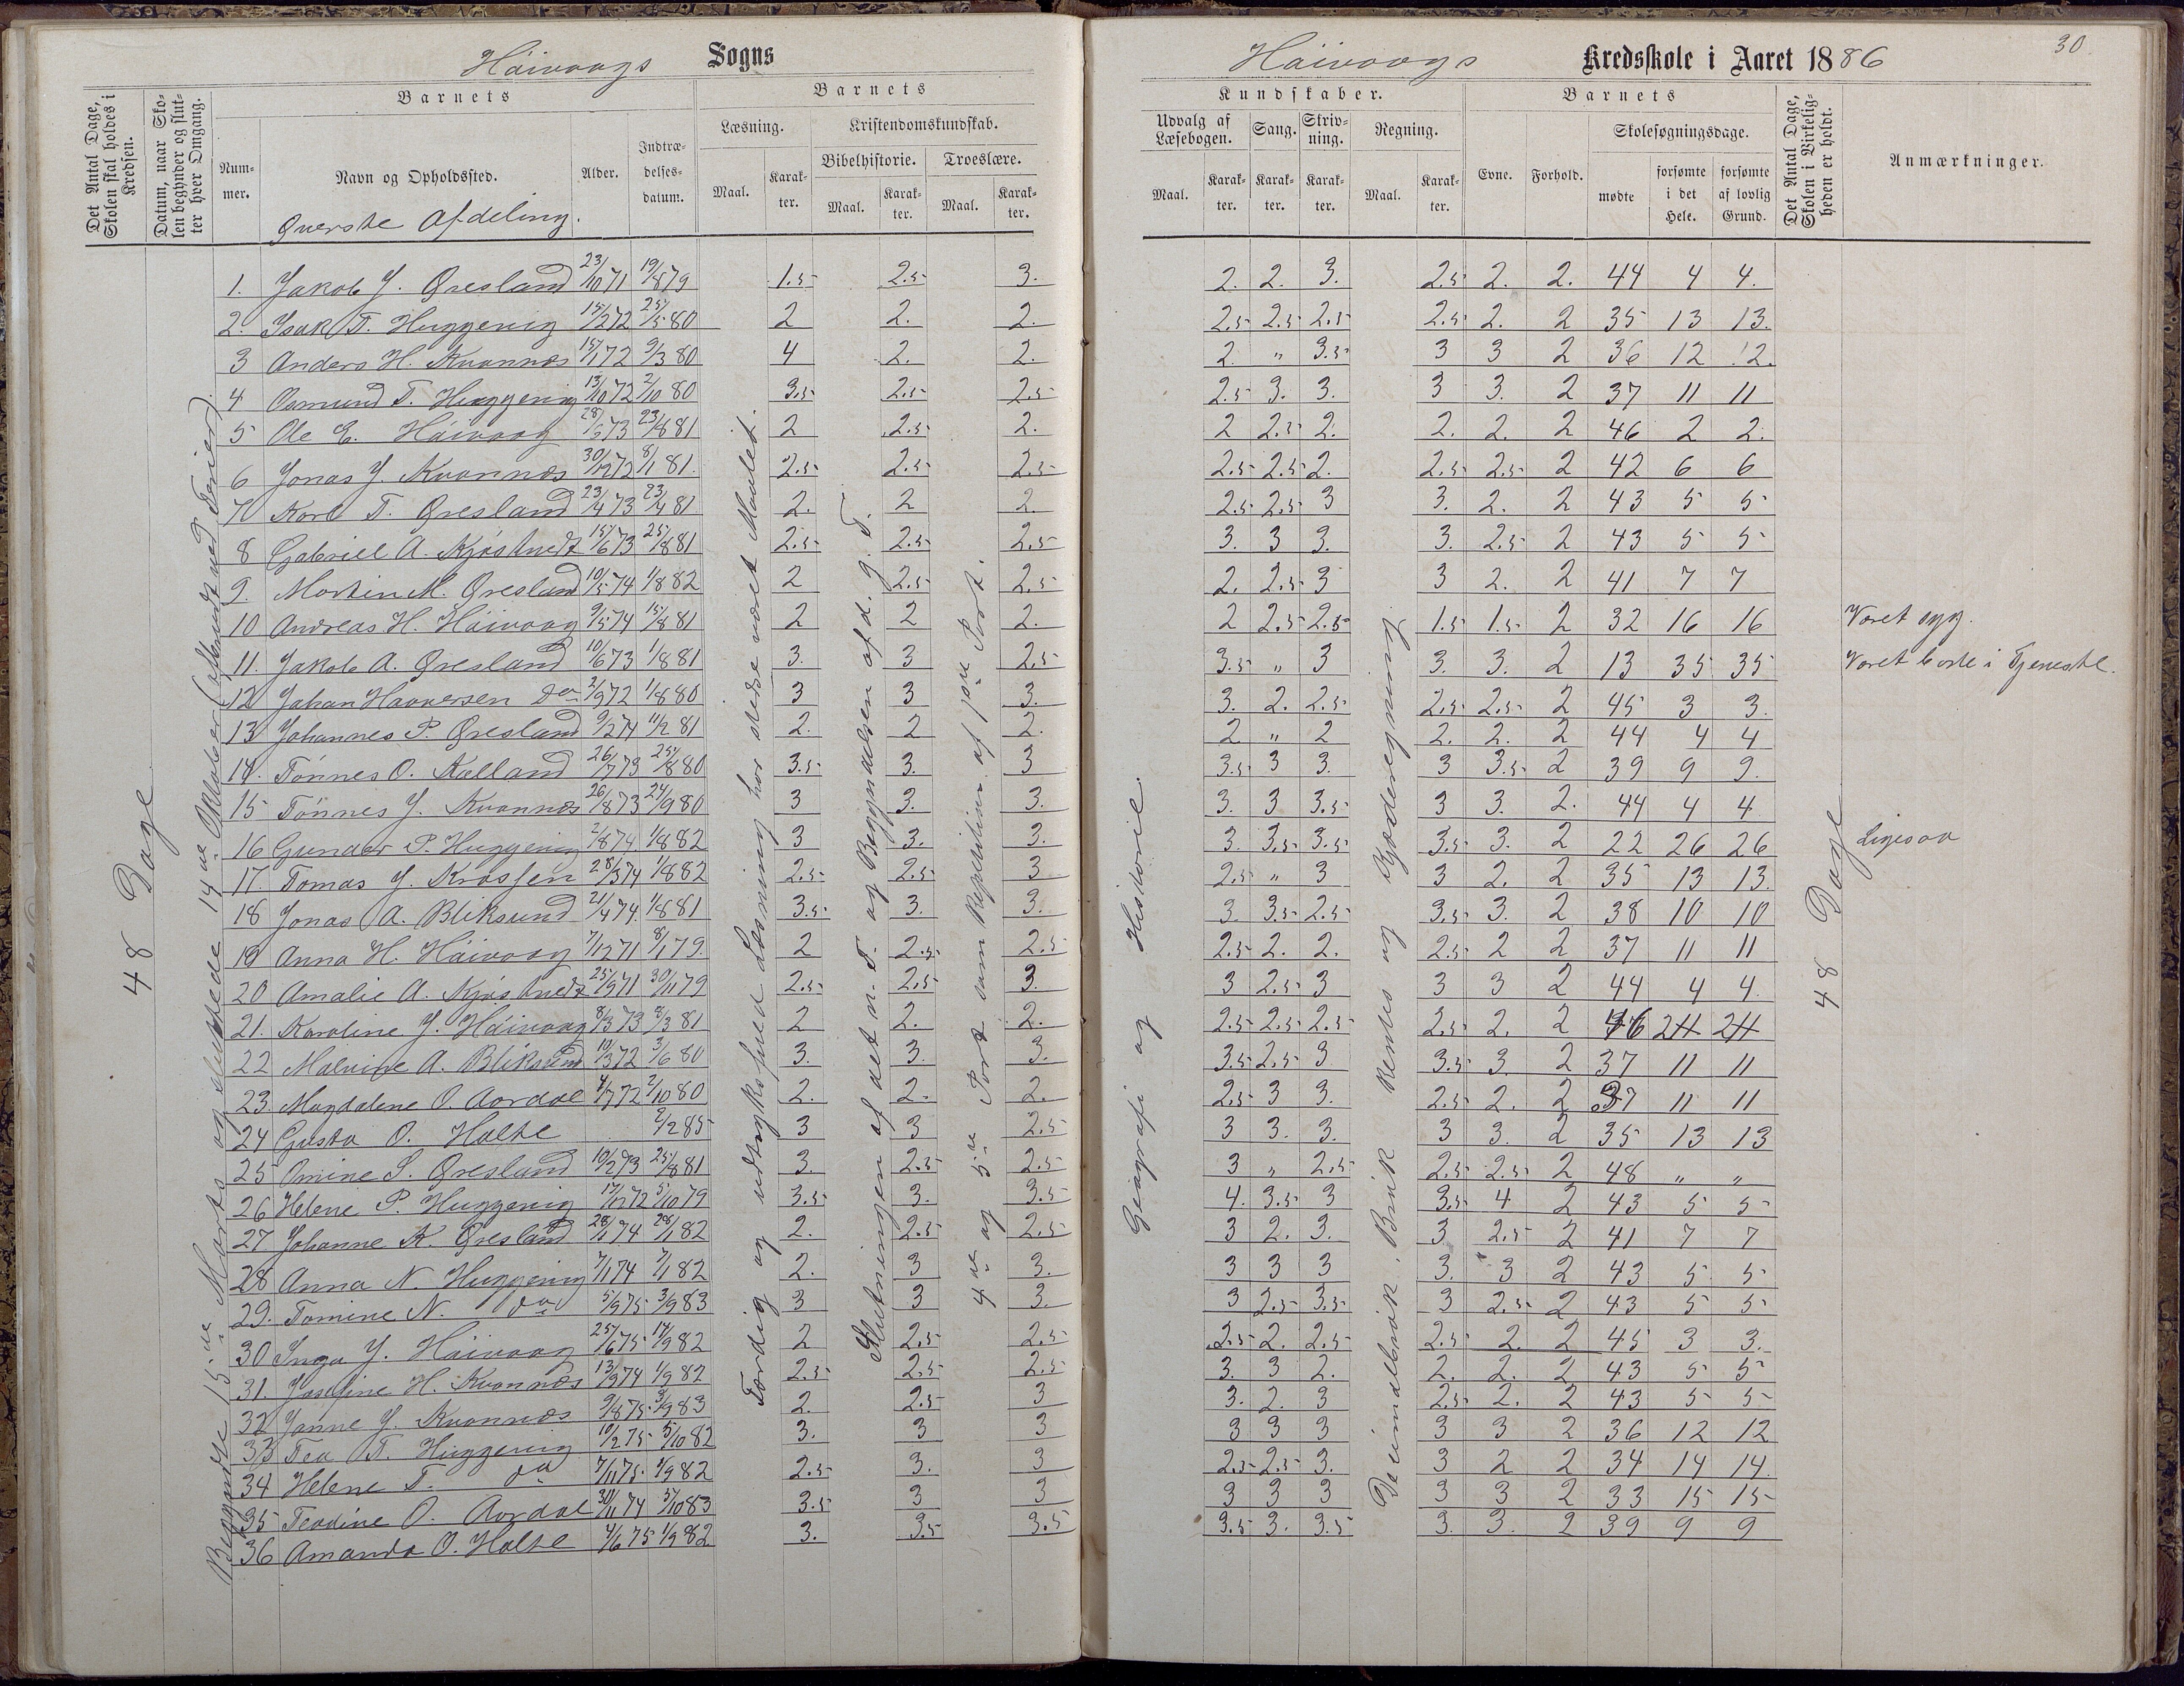 Håivaags Sogns
Håivaags Kredsskole i Aaret 1886
30.
Det Antal Dage, Skolen skal holdes i Kredsen.
Datum, naar Skolen begynder og slutter hver Omgang.
Barnets
Nummer.
Navn og Opholdssted.
Alder.
Indtrædelses-datum.
Barnets
Læsning.
Maal.
Karakter.
Kristendomskundskab.
Bibelhistorie.
Maal.
Karakter.
Troeslære.
Maal.
Karakter.
Kundskaber.
Udvalg af Læsebogen.
Maal.
Karakter.
Sang.
Karakter.
Skrivning.
Karakter.
Regning.
Maal.
Karakter.
Barnets
Evne.
Forhold.
Skolesøgningsdage.
mødte
forsømte i det Hele.
forsømte af lovlig Grund.
Det Antal Dage, Skolen i Virkeligheden er holdt.
Anmærkninger.
Øverste Afdeling.
48 Dage
Begyndte 15de Marts og sluttede 14de Oktober (afbrudt ved Ferier).
Færdig og udtryksfuld Læsning har stedse været Maalet.
Slutningen af det n. T. og Begyndelsen af d. g. T.
4de og 5te Part samt Repetition af 1ste Part.
Geografi og Historie.
Decimalbrøk, Brøk Rentes og Kjæderegning.
48 Dage
1. Jakob J. Øresland 23/10 71 19/8 79 1.5 2.5 3. 2. 2. 3. 2.5 2. 2. 44 4 4.
2. Isak T. Huggenig 15/2 72 25/5 80 2 2. 2. 2.5 2.5 2.5 2.5 2. 2 35 13 13.
3 Anders H. Kvannæs 15/1 72 9/3 80 4 2. 2. 2. " 3.5 3 3 2 36 12 12.
4 Osmund T. Huggenig 13/10 72 2/10 80 3.5 2.5 2.5 2.5 3. 3. 3 3. 2 37 11 11
5 Ole E. Håivaag 28/3 73 23/8 81 2 2.5 2. 2 2.5 2. 2. 2. 2 46 2 2.
6 Jonas J. Kvannæs 30/12 72 8/1 81. 2.5 2.5 2.5 2.5 2.5 2. 2.5 2.5 2 42 6 6
7 Karl T. Øresland 23/4 73 23/4 81 2. 2 2. 2.5 2.5 3 3. 2. 2 43 5 5
8 Gabriel A. Kjøstvedt 15/6 73 25/8 81 2.5 2.5 2.5 3. 3 3. 3. 2.5 2 43 5 5
9. Martin M. Øresland 10/5 74 1/8 82 2 2.5 2.5 2. 2.5 3 3 2. 2 41 7 7
10 Andreas H. Håivaag 9/5 74 15/8 81 2 2 2. 2 2.5 2.5 1.5 1.5 2 32 16 16 Været syg.
11. Jakob A. Øresland 10/6 73 1/8 81 3. 3 2.5 3.5 " 3 3. 3. 2 13 35 35 Været borte i Tjeneste.
12 Johan Haaversen do 2/9 72 1/8 80 3 3 3. 3. 2. 2.5 2.5 2.5 2 45 3 3.
13 Johannes P. Øresland 9/2 74 11/2 81 2. 2 2. 2 " 2 2. 2. 2 44 4 4
14. Tønnes O. Kalland 26/7 73 25/8 80 3.5 3. 3 3.5 3 3. 3 3.5 2 39 9 9.
15 Tønnes J. Kvannæs 26/8 73 24/9 80 3 3. 3. 3. 3 3.5 3 3. 2. 44 4 4
16 Gunder P. Huggenig 2/8 74 1/8 82 3 3. 3. 3. 3.5 3.5 3.5 3. 2 22 26 26 Ligesaa
17. Tomas J. Krossen 28/3 74 1/8 82 2.5 2.5 3 2.5 " 3 3 2. 2 35 13 13.
18 Jonas A. Bliksund 21/4 74. 1/8 81 3.5 3. 3. 3. 3.5 2.5 3.5 3. 2 38 10 10
19 Anna H. Håivaag 7/12 71 8/1 79. 2 2.5 2.5 2.5 2. 2. 2.5 2 2 37 11 11
20 Amalie A. Kjøstvedt 25/9 71 30/11 79 2.5 2.5 3. 3 2.5 3 3 3 2 44 4 4
21. Karoline J. Håivaag 8/3 73 8/3 81 2 2. 2. 2.5 2.5 2.5 2.5 2. 2 46 2 2
22 Malvine A. Bliksund 10/3 72 3/6 80 3. 3. 3. 3.5 2.5 3 3.5 3. 2 37 11 11
23. Magdalene O. Aardal 4/7 72 2/10 80 2. 2. 2. 2.5 3 3. 2.5 2. 2 37 11 11
24 Gusta O. Holte 2/2 85 3 3 2.5 3 3. 3. 3 3. 2 35 13 13
25 Omine S. Øresland 10/2 73 25/8 81 3. 2.5 2.5 3 " 2.5 2.5 2.5 2 48 " "
26 Helene P. Huggenig 17/12 72 5/10 79 3.5 3. 3.5 4. 3.5 3 3.5 4 2 43 5 5
27 Johanne K. Øresland 28/1 74 28/1 82 2. 2.5 2.5 3 2. 3. 3 2.5 2 41 7 7
28 Anna N. Huggenig 7/1 74 7/1 82 2. 3 3. 3 3 3 3. 3 2 43 5 5
29. Tomine N. do 5/9 75 3/9 83 3 3 3. 3 2.5 3.5 3 2.5 2 43 5 5
30 Inga J. Håivaag 25/6 75 14/9 82 2 2.5 2.5 2.5 2. 2.5 2.5 2. 2 45 3 3.
31. Josefine H. Kvannæs 13/9 74 1/9 82 2.5 2.5 2.5 3. 3 2. 2. 2. 2 43 5 5
32 Janne J. Kvannæs 9/8 75 3/9 83 2. 2.5 3 3. 2. 3 2.5 2. 2 43 5 5
33 Tea T. Huggenig 10/2 75 5/10 82 3. 3 3 3 3 3 3 3 2 36 12 12
34 Helene T. do 7/11 75 1/9 82 2.5 3. 3 2.5 2.5 3. 3 2 2 34 14 14.
35 Teodine O. Aardal 30/11 74 5/10 83 3.5 3 3 3 3 3 3 3 2 33 15 15
36 Amanda O. Holte 4/6 75 1/9 82 3. 3.5 3.5 3.5 3. 3.5 3. 3. 2 39 9 9